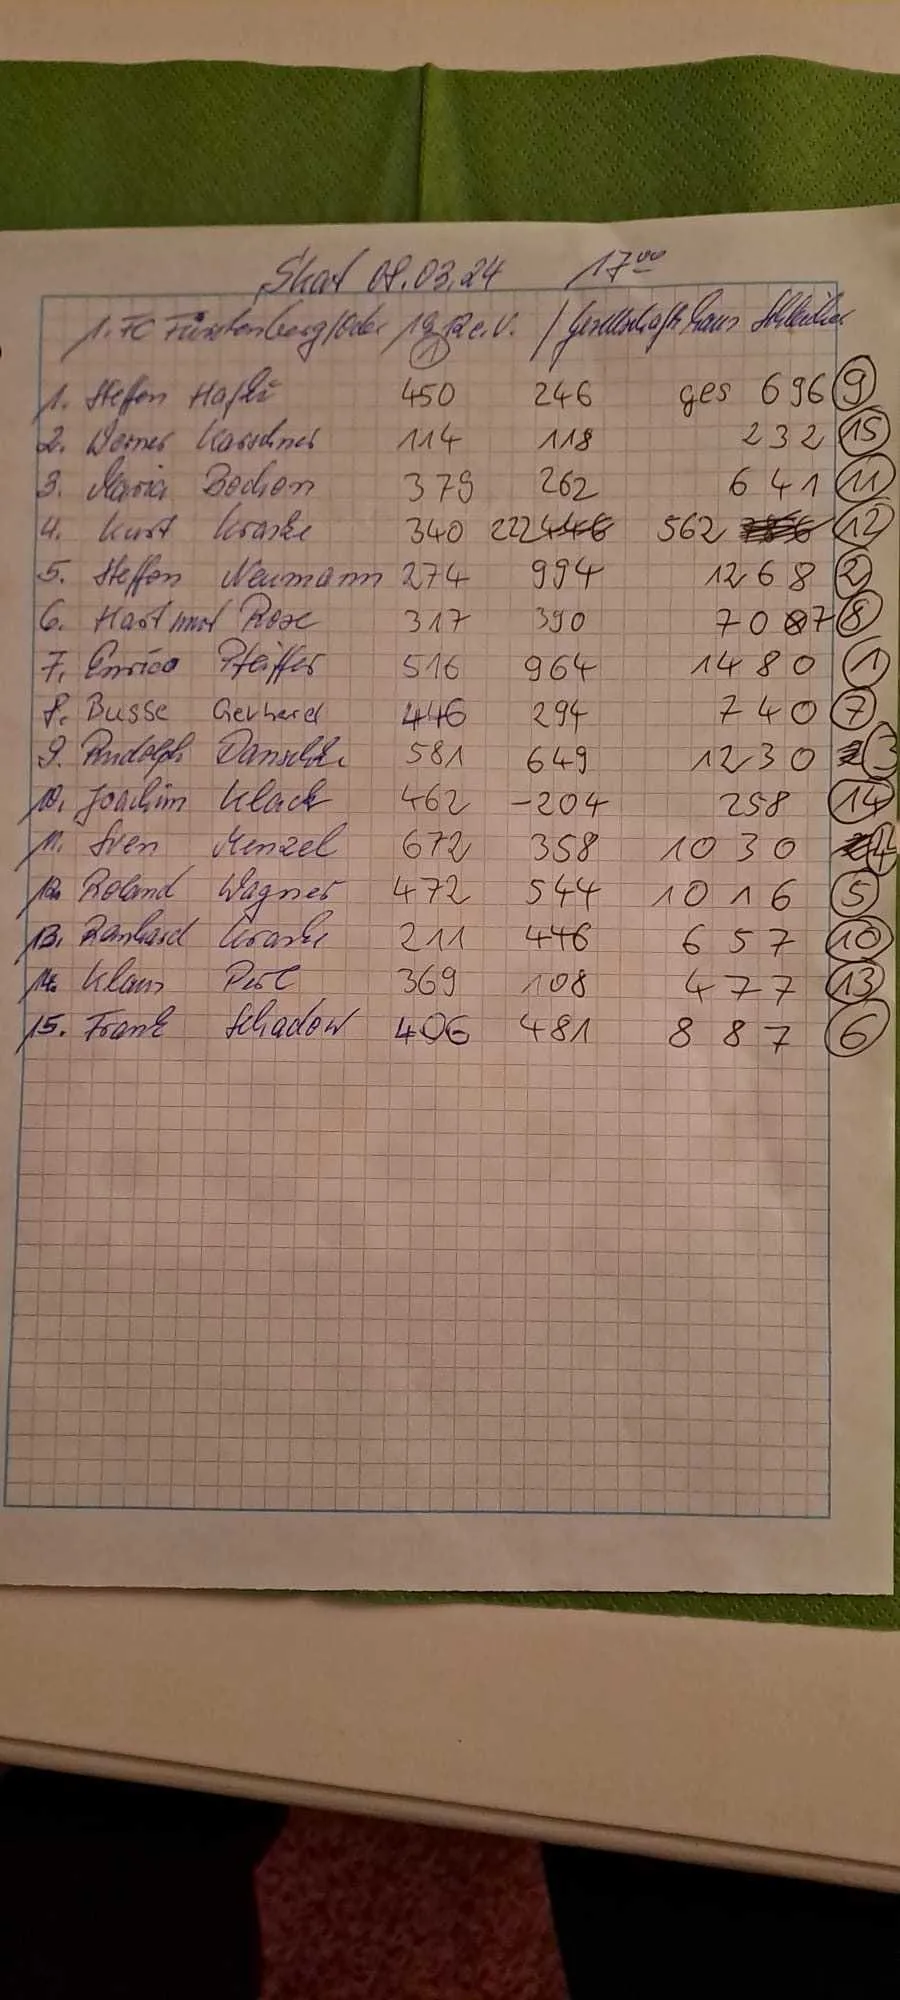 Skat 08.03.24 17⁰⁰
1. FC Fürstenberg/Oder 1912 e.V. / Gesellschaftshaus
①
1. Steffen 450 246 ges 696 ⑨
2. Werner Karschner 114 118 232 ⑮
3. Maria Bochon 379 262 641 ⑪
4. Kurt Kraske 340 222 446 562 ⑫
5. Steffen Neumann 274 994 1268 ②
6. Hartmut Rose 317 390 707 ⑧
7. Enrico Pfeiffer 516 964 1480 ①
8. Busse Gerhard 446 294 740 ⑦
9. Rudolph 581 649 1230 ③
10. Joachim Klack 462 -204 258 ⑭
11. Sven Menzel 672 358 1030 ④
12. Roland Wagner 472 544 1016 ⑤
13. Kraske 211 446 657 ⑩
14. Klaus 369 108 477 ⑬
15. Frank Schadow 406 481 887 ⑥